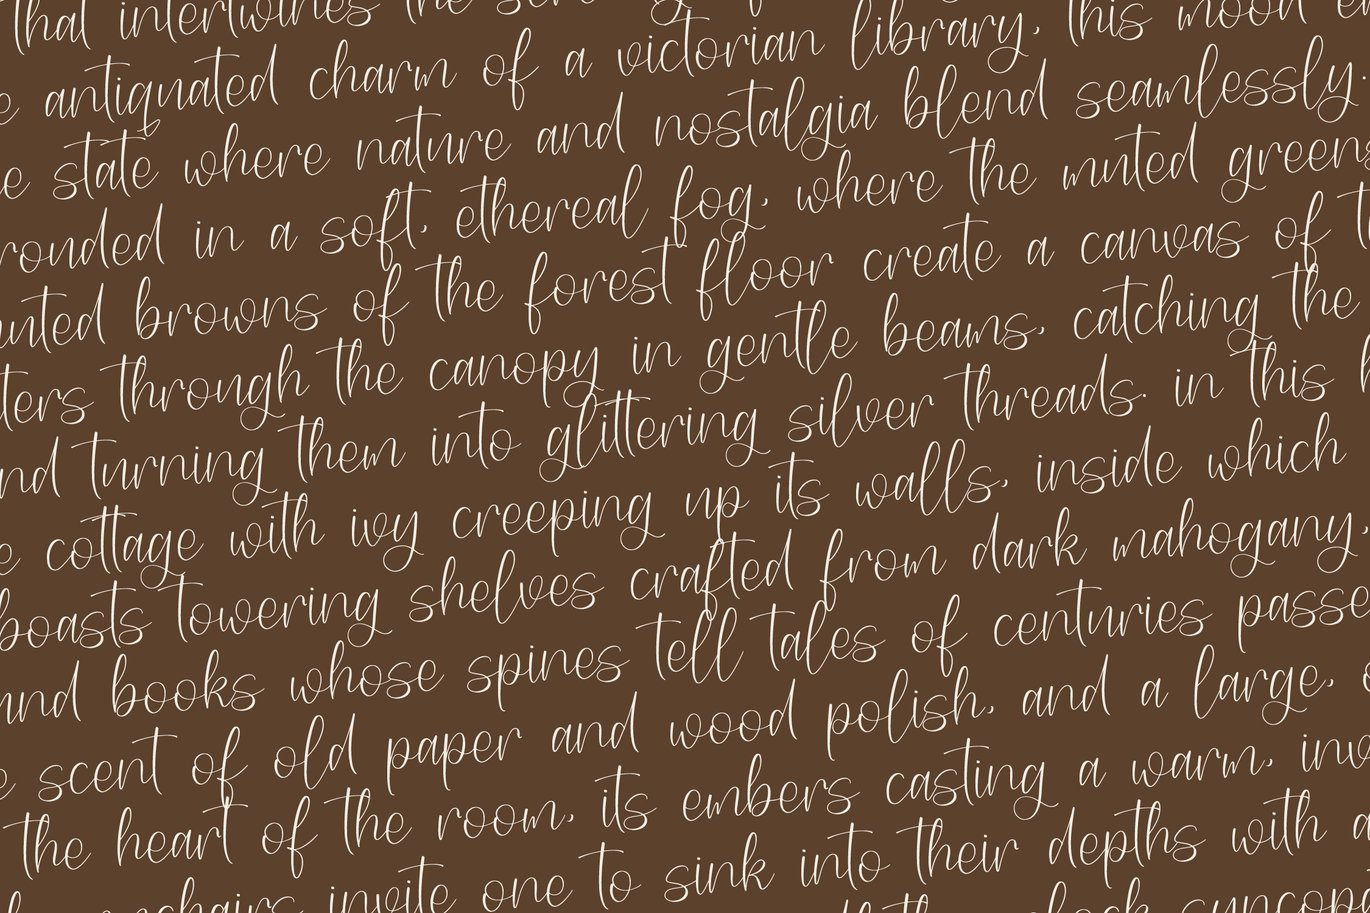 that intertwines the
antiquated charm of a victorian library, this mood
state where nature and nostalgia blend seamlessly.
in a soft, ethereal fog, where the muted greens
browns of the forest floor create a canvas of
through the canopy in gentle beams, catching the
turning them into glittering silver threads. in this
cottage with ivy creeping up its walls, inside which
boasts towering shelves crafted from dark mahogany,
books whose spines tell tales of centuries
scent of old paper and wood polish, and a large,
the heart of the room, its embers casting a warm,
invite one to sink into their depths with a